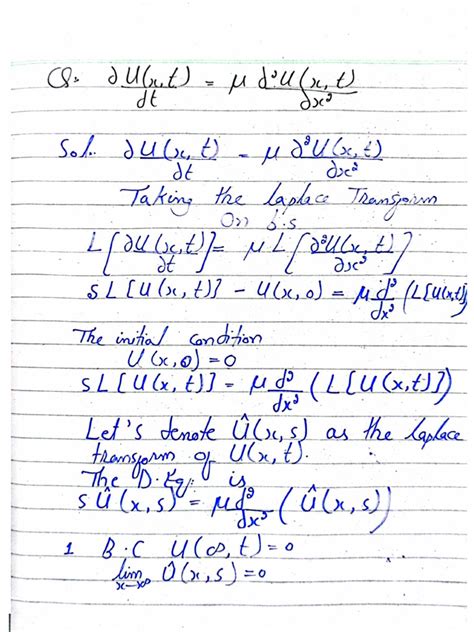 Q:- ∂U(x,t)/dt = μ d²U(x,t)/∂x²
Sol:. ∂U(x,t)/∂t = μ ∂²U(x,t)/∂x²
Taking the Laplace Transform
On b.s
L[∂U(x,t)/∂t] = μ L[∂²U(x,t)/∂x²]
s L[U(x,t)] - U(x,0) = μ d²/dx² (L[U(x,t)])
The initial condition
U(x,0) = 0
s L[U(x,t)] = μ d²/dx² (L[U(x,t)])
Let's denote Û(x,s) as the Laplace
transform of U(x,t).
The D.Eq. is
s Û(x,s) = μ d²/dx² (Û(x,s))
1 B.C U(∞,t) = 0
lim x→∞ Û(x,s) = 0